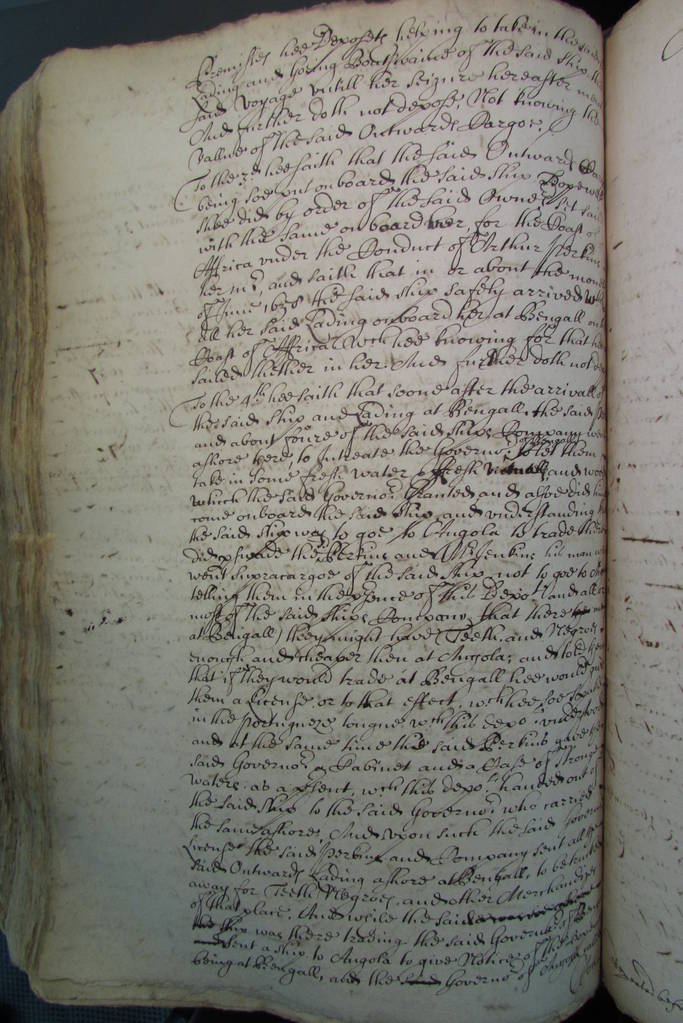 Premisses hee Deposeth helping to take in the said
Lading and goeing Boatswaine of the said ship the
said Voyage untill her seizure hereafter men
And further doth not depose, Not knowing the
vallue of the said Outwards Cargoe.
To the 3rd hee saith that the said Outwards
being soe put onboard the said ship Hopewell
shee did by order of the said Owners set saile
with the same onboard her, for the Coast of
Affrica under the Conduct of Arthur Perkins
her mr, and saith that in or about the moneth
of June 1658 the said ship safely arrived with
all her said Lading onboard her at Bengall on the
Coast of Affrica wch hee knowing for that hee
sailed thither in her And further doth not
To the 4th hee saith that soone after the arrivall of
the said ship and Lading at Bengall, the said
and about foure of the said ships Company went
ashore there, to intreate the Governor of Bengall to let them
take in some fresh water fresh and wood
which the said Governor Granted and alsoe did
come onboard the said ship, and understanding
the said ship was to goe to Angola to trade there
did perswade the Perkins and Jenkins his man who
went Supracargoe of the said ship not to goe to
telling them in the presence of this Depont and all or
most of the said ships Company, that there
at Bengall they might have Teeth and Negroes
enough and cheaper then at Angola, and told them
that if they would trade at Bengall hee would give
them a License or to that effect, wch hee soe spoke
in the Portugueze tongue wch this depont understood
and at the same time the said Perkins gave the
said Governor a Cabinet and a Case of stronge
waters as a present, wch this depont handed out of
the said ship to the said Governor who carried
the same ashore, And upon such the said Governors
License the said Perkins and Company sent all the
said Outwards Lading ashore at Bengall, to be trucked
away for Teeth Negroes, and other Merchandizes
of that place. And while the said
ship was there trading the said Governor of Bengall
sent a ship to Angola to give Notice of
being at Bengall, and the Governor of Angola